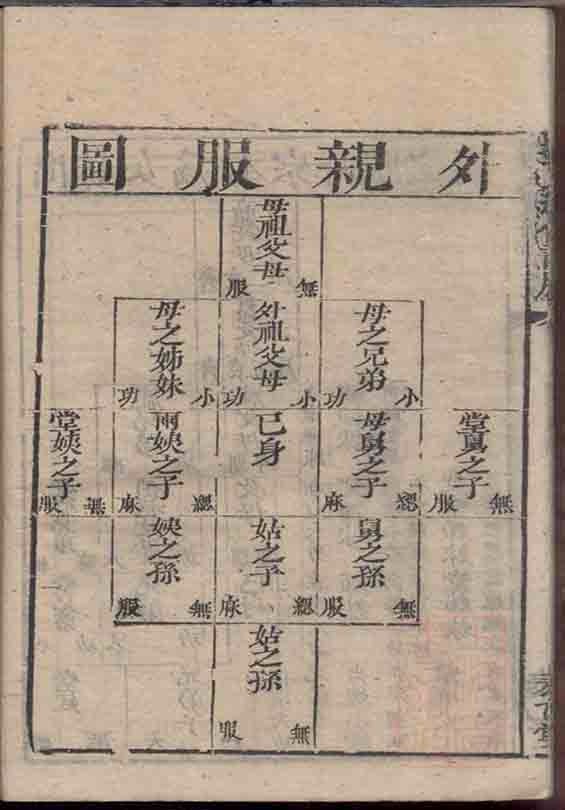 外親服圖
母祖父母
無服
母之兄弟
小功
外祖父母
小功
母之姊妹
小功
堂舅之子
無服
母舅之子
緦麻
己身
兩姨之子
緦麻
堂姨之子
無服
舅之孫
無服
姑之子
緦麻
姨之孫
無服
姑之孫
無服